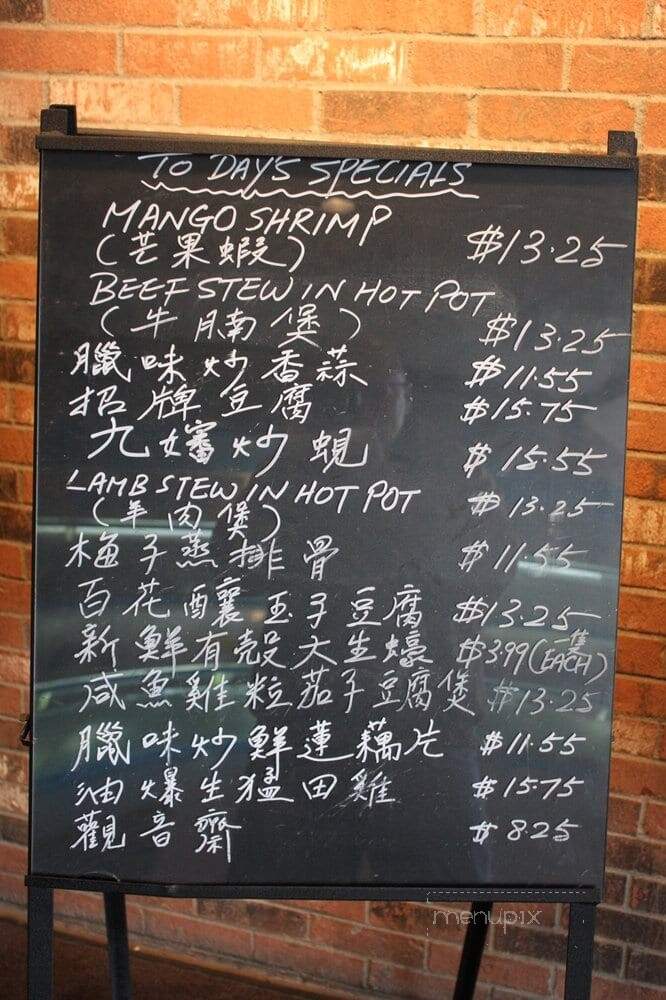 TO DAY'S SPECIALS
MANGO SHRIMP
(芒果蝦) $13.25
BEEF STEW IN HOT POT
(牛腩煲) $13.25
臘味炒香蒜 $11.55
招牌豆腐 $15.75
九嬸炒蜆 $15.55
LAMB STEW IN HOT POT
(羊肉煲) $13.25
梅子蒸排骨 $11.55
百花釀玉子豆腐 $13.25
新鮮有殼大生蠔 $3.99(EACH隻)
咸魚雞粒茄子豆腐煲 $13.25
臘味炒鮮蓮藕片 $11.55
油爆生猛田雞 $15.75
觀音齋 $8.25
menupix